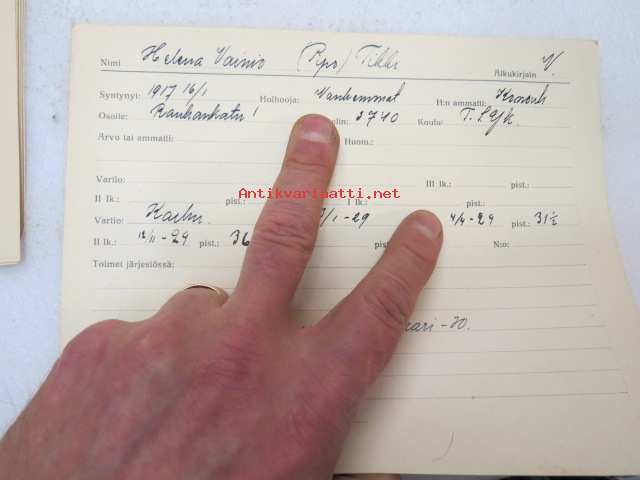 Nimi Helena Vainio (Pipo) Tikki Alkukirjain V.
Syntynyt: 1917 16/1 Holhooja: Vanhemmat H:n ammatti:
Osoite: Rauhankatu 1 elin: 3740 Koulu: T.
Arvo tai ammatti: Huom.:
Antikvariaatti.net
Vartio: III lk.: pist.:
II lk.: pist. I lk.: pist.:
Vartio: Karhu. /1-29 4/4-29 pist.: 31½
II lk.: 12/11-29 pist.: 36 pist N:o:
Toimet järjestössä:
ari-30.